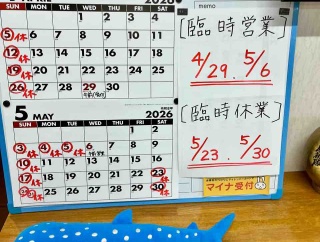 2026
memo
SUN MON TUE WED THU FRI SAT
1 2 3 4
5休 6 7 8 9 10 11
12休 13 14 15 16 17 18
19休 20 21 22 23 24 25
26休 27 28 29 30
[臨時営業]
4/29. 5/6
[臨時休業]
5/23. 5/30
マイナ受付
5 MAY 2026
SUN MON TUE WED THU FRI SAT
1 2
3休 4休 5休 6 7 8 9
10休 11 12 13 14 15 16
17休 18 19 20 21 22 23休
24休 25 26 27 28 29 30休
31休